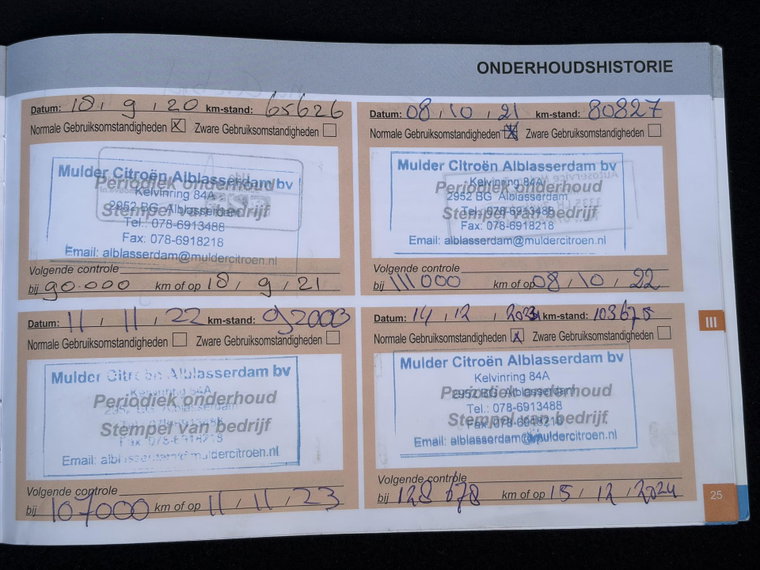 ONDERHOUDSHISTORIE
Datum: 18 , 9 , 20 km-stand: 65626
Normale Gebruiksomstandigheden X Zware Gebruiksomstandigheden
Mulder Citroën Alblasserdam bv
Periodiek onderhoud
Kelvinring 84A
2952 BG Alblasserdam
Stempel van bedrijf
Tel.: 078-6913488
Fax: 078-6918218
Email: alblasserdam@muldercitroen.nl
Volgende controle
bij 90.000 km of op 18 , 9 , 21
Datum: 08 , 10 , 21 km-stand: 80827
Normale Gebruiksomstandigheden X Zware Gebruiksomstandigheden
Mulder Citroën Alblasserdam bv
Kelvinring 84A
Periodiek onderhoud
2952 BG Alblasserdam
Stempel van bedrijf
Tel.: 078-6913488
Fax: 078-6918218
Email: alblasserdam@muldercitroen.nl
Volgende controle
bij 111000 km of op 08 , 10 , 22
Datum: 11 , 11 , 22 km-stand: 92000
Normale Gebruiksomstandigheden Zware Gebruiksomstandigheden
Mulder Citroën Alblasserdam bv
Periodiek onderhoud
Stempel van bedrijf
Fax: 078-6918218
Email: alblasserdam@muldercitroen.nl
Volgende controle
bij 107000 km of op 11 , 11 , 23
Datum: 14 , 12 , 2023 km-stand: 103675
Normale Gebruiksomstandigheden X Zware Gebruiksomstandigheden
Mulder Citroën Alblasserdam bv
Kelvinring 84A
Periodiek onderhoud
2952 BG Alblasserdam
Tel.: 078-6913488
Stempel van bedrijf
Fax: 078-6918218
Email: alblasserdam@muldercitroen.nl
Volgende controle
bij 128 678 km of op 15 , 12 , 2024
III
25